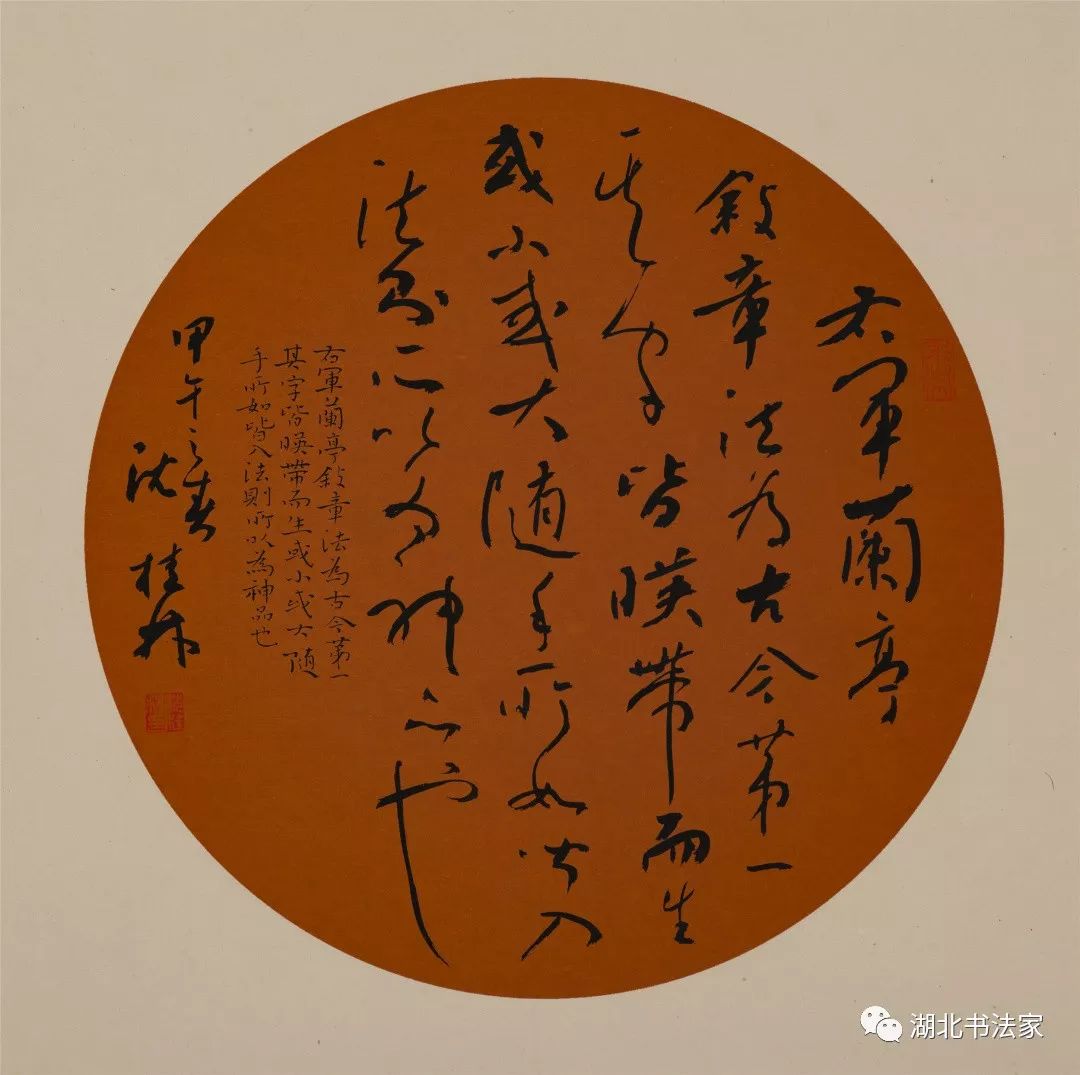 右軍蘭亭
敘章法為古今第一
其字皆暎帶而生
或小或大随手所如皆入
法則所以為神品也
右軍蘭亭敘章法為古今第一
其字皆暎帶而生或小或大随
手所如皆入法則所以為神品也
甲午之春
沈桂林
湖北书法家